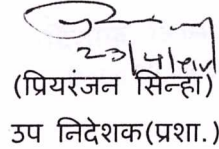 23/4/
(प्रियरंजन सिन्हा)
उप निदेशक(प्रशा.)